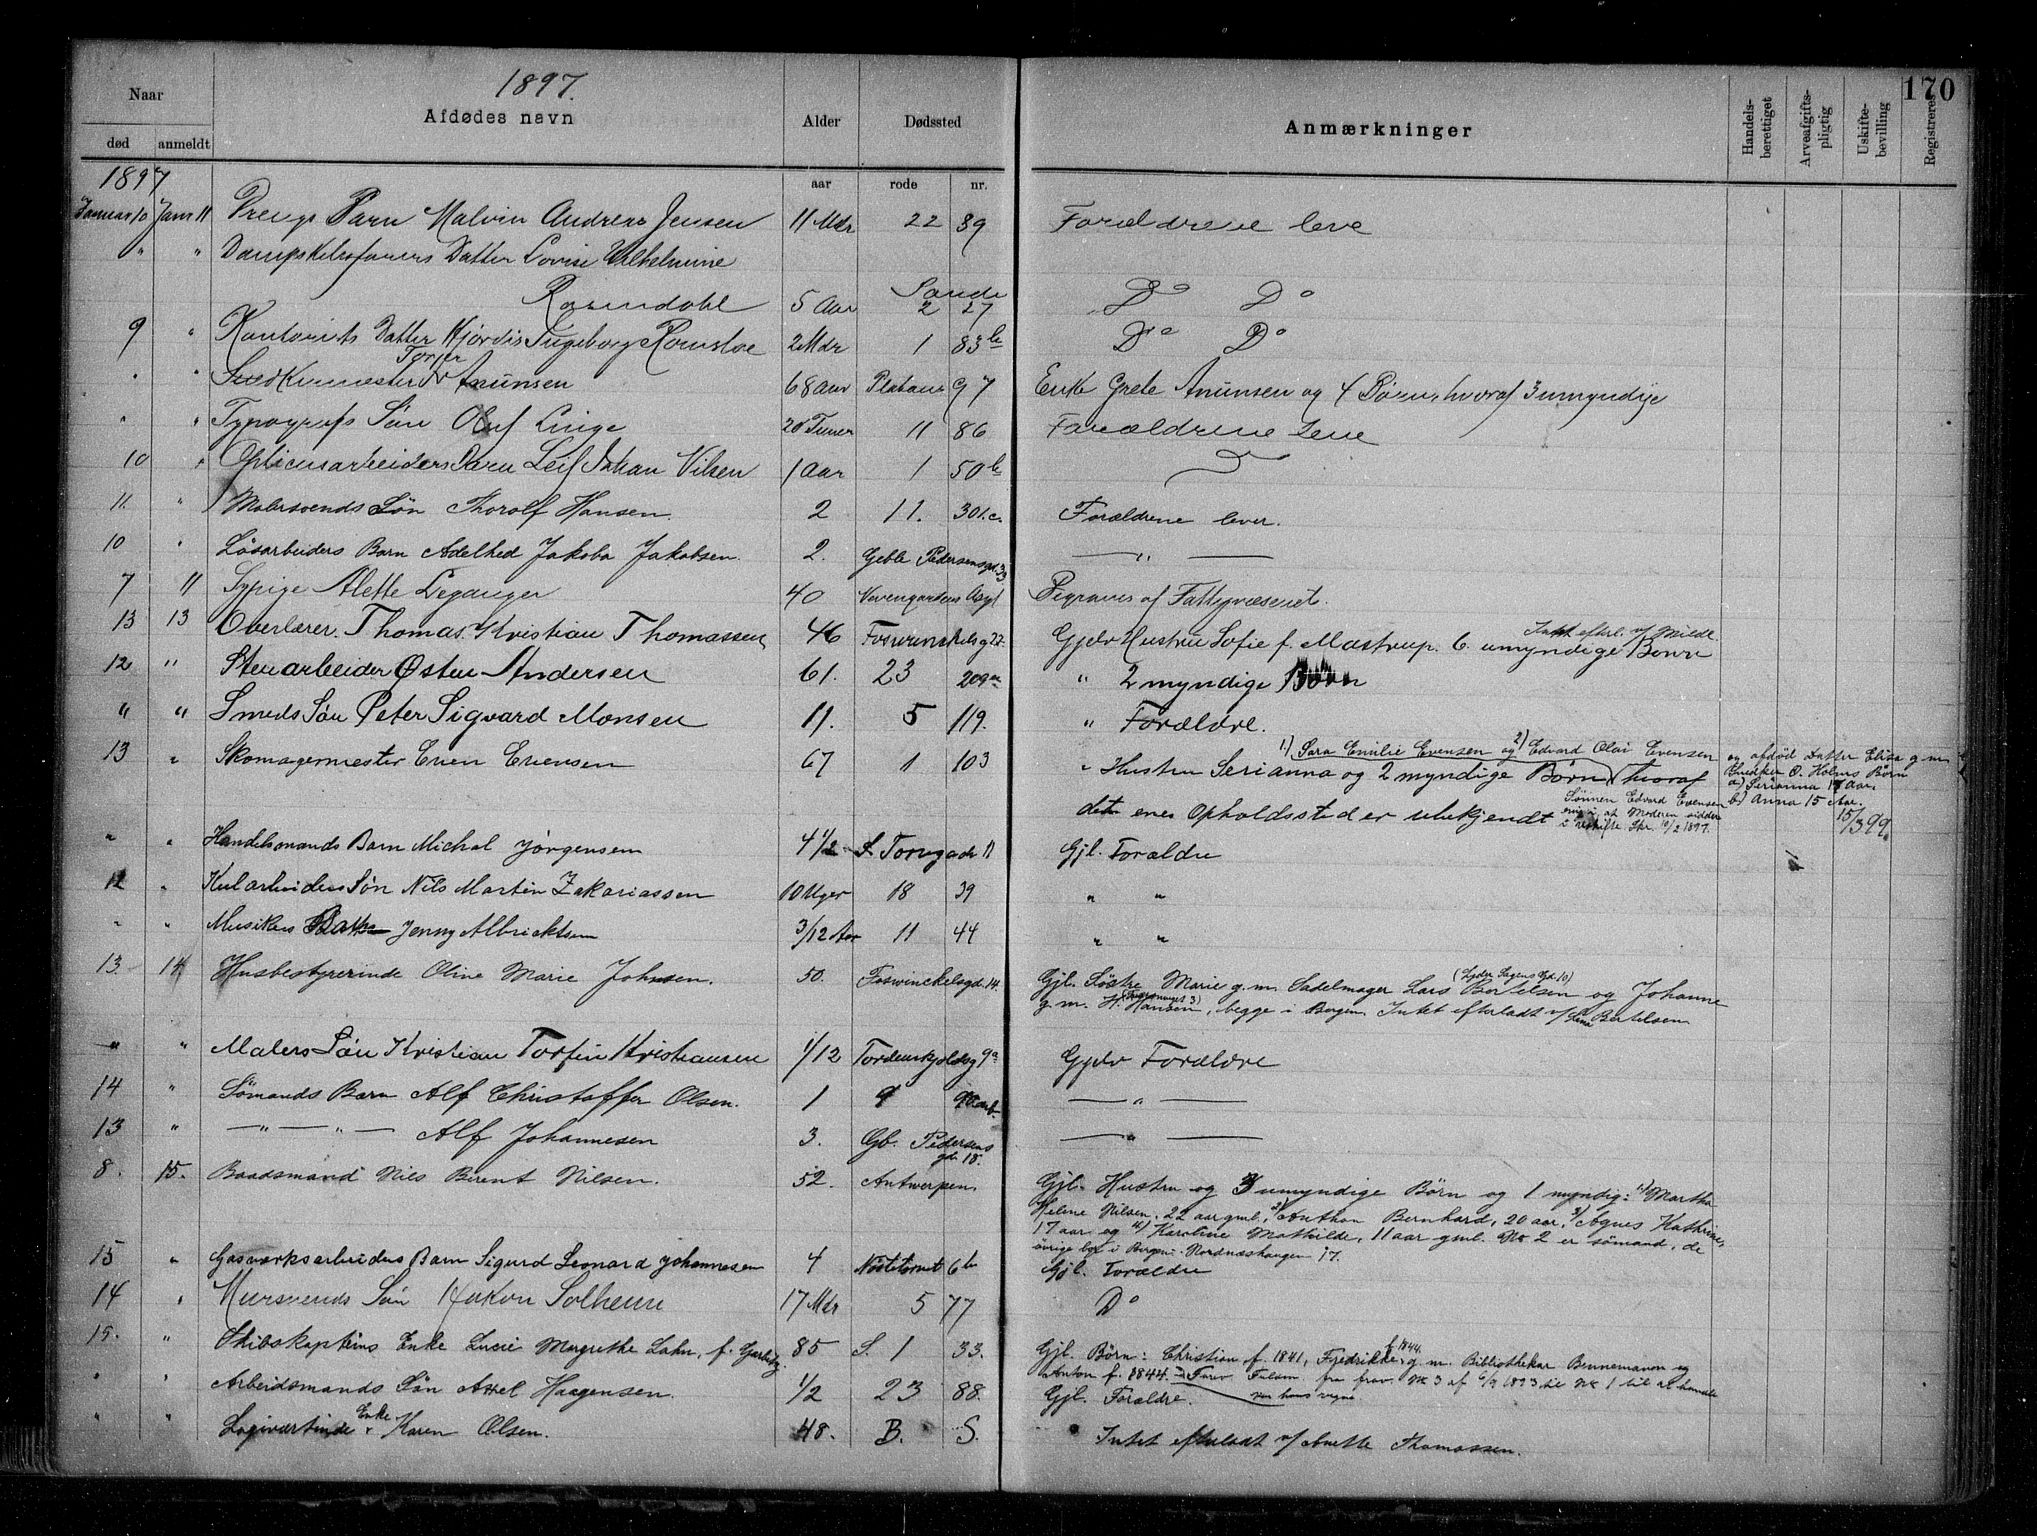 170
1897.
Naar
død
anmeldt
Afdødes navn
Alder
aar
Dødssted
rode
nr.
Anmærkninger
Handels-berettiget
Arveafgifts-pligtig
Uskifte-bevilling
Registreres
1897
Januar 10 Janr 11 Drengs Barn Malvin Andreas Jensen 11 Mdr 22 89 Forældrene leve
" " Datter Lovise Vilhelmine
Rosendahl 5 Aar Sande 2 27 Do Do
9 " Kontorists Datter Hjørdis Ingeborg 2 Mdr 1 83 b Do Do
" " Snedkermester Torjer Anunsen 68 Aar 7 Enke Grete Anunsen og 4 Børn, hvoraf 3 umyndige
" " Typografs Søn Oluf Linge 20 Timer 11 86 Forældrene Leve
10 " Barn Leif Johan Nilsen 1 Aar 1 50 b
11. " Malersvends Søn Thorolf Hansen. 2 11. 301.c. Forældrene lever.
10 " Løsarbeiders Barn Adelhed Jakoba Jakobsen. 2. Geble Pedersensgd. 33 — " —
7 11 Sypige Alette Leganger 40 Begraves af Fattigvæsenet.
13 13 Overlærer. Thomas Kristian Thomassen 46 Foswinckelsg 27. Gjelv Hustru Sofie f. Mastrup. 6. umyndige Børn Intet efterl. v/ Milde.
12 " Stenarbeider Østen Andersen 61. 23 209 a " 2 myndige Børn
" " Smeds Søn Peter Sigvard Monsen 11. 5 119. " Forældre.
13 " Skomagermester Even Evensen 67 1 103 " Husten Serianna og 2 myndige Børn hvoraf
1) Sara Emilie Evensen og 2) Edvard Olai Evensen og afdød Datter Elisa g. m.
O. Holms Børn
a) Serianna 17 Aar.
b) Anna 15 Aar.
det enes Opholdssted er ubekjendt Sønnen Edvard Evensen
enig i, at Moderen sidder
i uskifte Skr. 10/2 1897. 15/3 99
" " Handelsmands Barn Michal Jørgensen 4 1/2 S. Torvgade 11 Gjl. Forældre
12 " Kularbeiders Søn Nils Martin Zakariassen 10 Uger 18 39 " "
" " Musikers Jenny Albricktsen 3/12 Aar 11 44 " "
13. 14 Husbestyrerinde Oline Marie Johnsen. 50. Foswinckelsgd. 14. Gjl. Søstre Marie g. m. Sadelmager Lars Bertelsen (Lyder Sagens Gd. 10) og Johanne
g. m. H. Hansen, begge i Bergen. Intet efterladt v/ Bertelsen
" " Malers Søn Kristian Torfin Kristiansen 1/12 Tordenskjoldsg 9 a Gjelv Forældre
14 " Sømands Barn Alf Christoffer Olsen. 1 9 — " —
13 " — " — " — Alf Johannesen 3. Gb. Pedersens gd. 18. — " —
8. 15. Baadsmand Nils Berent Nilsen. 52. Antwerpen. Gjl. Hustru og 3 umyndige Børn og 1 myndig: 1) Martha
Helene Nilsen, 22 aar gml., 2) Anthon Bernhard, 20 aar, 3) Agnes Kathrine,
17 aar og 4) Karoline Mathilde, 11 aar gml. No 2 er sømand, de
øvrige bor i Bergen. Nordnæshaugen 17.
15 " Gasværksarbeiders Barn Sigurd Leonard Johannesen 4 Nøstetorvet 6 b Gjl. Forældre
14 " Mursvends Søn Hakon Solheim 17 Mdr 5 77 Do
15. " Skibskapteins Enke Lucie Margrethe Lahn, f. 85 S. 1 33. Gjl. Børn: Christian f. 1841, Fredrikke, f 1844. g. m. Bibliothekar Bennemann og
Anton f. 1844. Fuldm. fra No 3 af 6/9 1893 til No 1 til at handle
paa hans vegne
" " Arbeidsmands Søn Axel Haagensen. 1/2 23 88. Gjl. Forældre.
" " Logivertinde, Enke Karen Olsen. 48. B. S. Intet efterladt v/ Anette Thomassen.